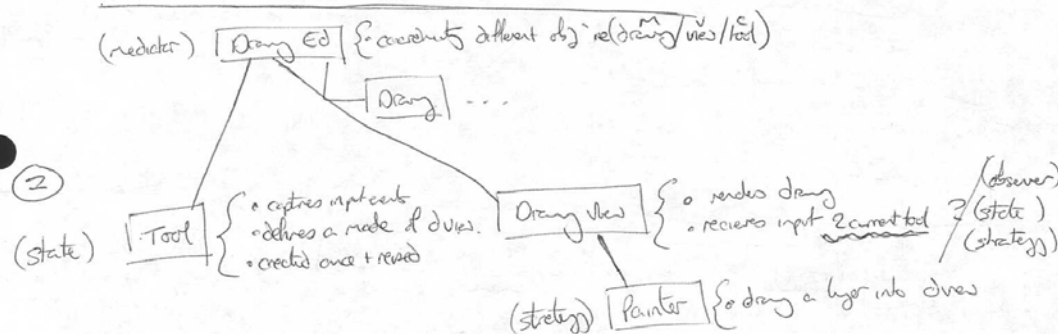 (mediator) Drawing Ed { • coordinates different obj ie (drawing/view/tool)
M V C
Drawing ...
2
(state) Tool { • captures input events
• defines a mode of dview.
• created once + reused
Drawing View { • renders drawing
• recieves input 2 current tool
? (observer)
(state)
(strategy)
(strategy) Painter { • draw a layer into dview